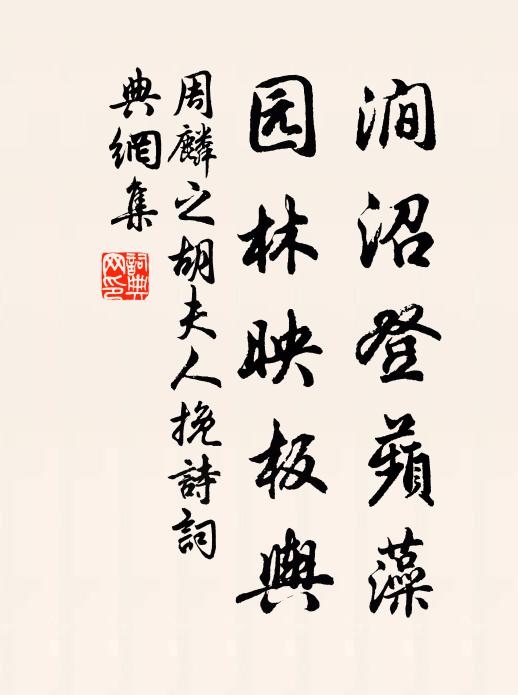 涧沼登蘋藻
园林映板舆
周麟之胡夫人挽詩詞
典網集
詞典網印